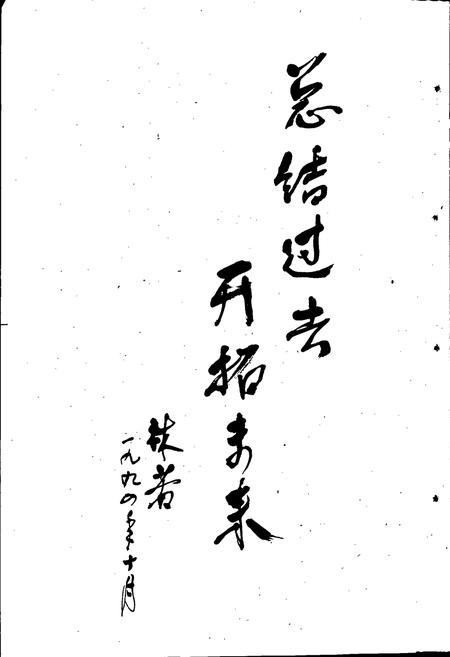 总结过去
开拓未来
林若
一九九四年十月